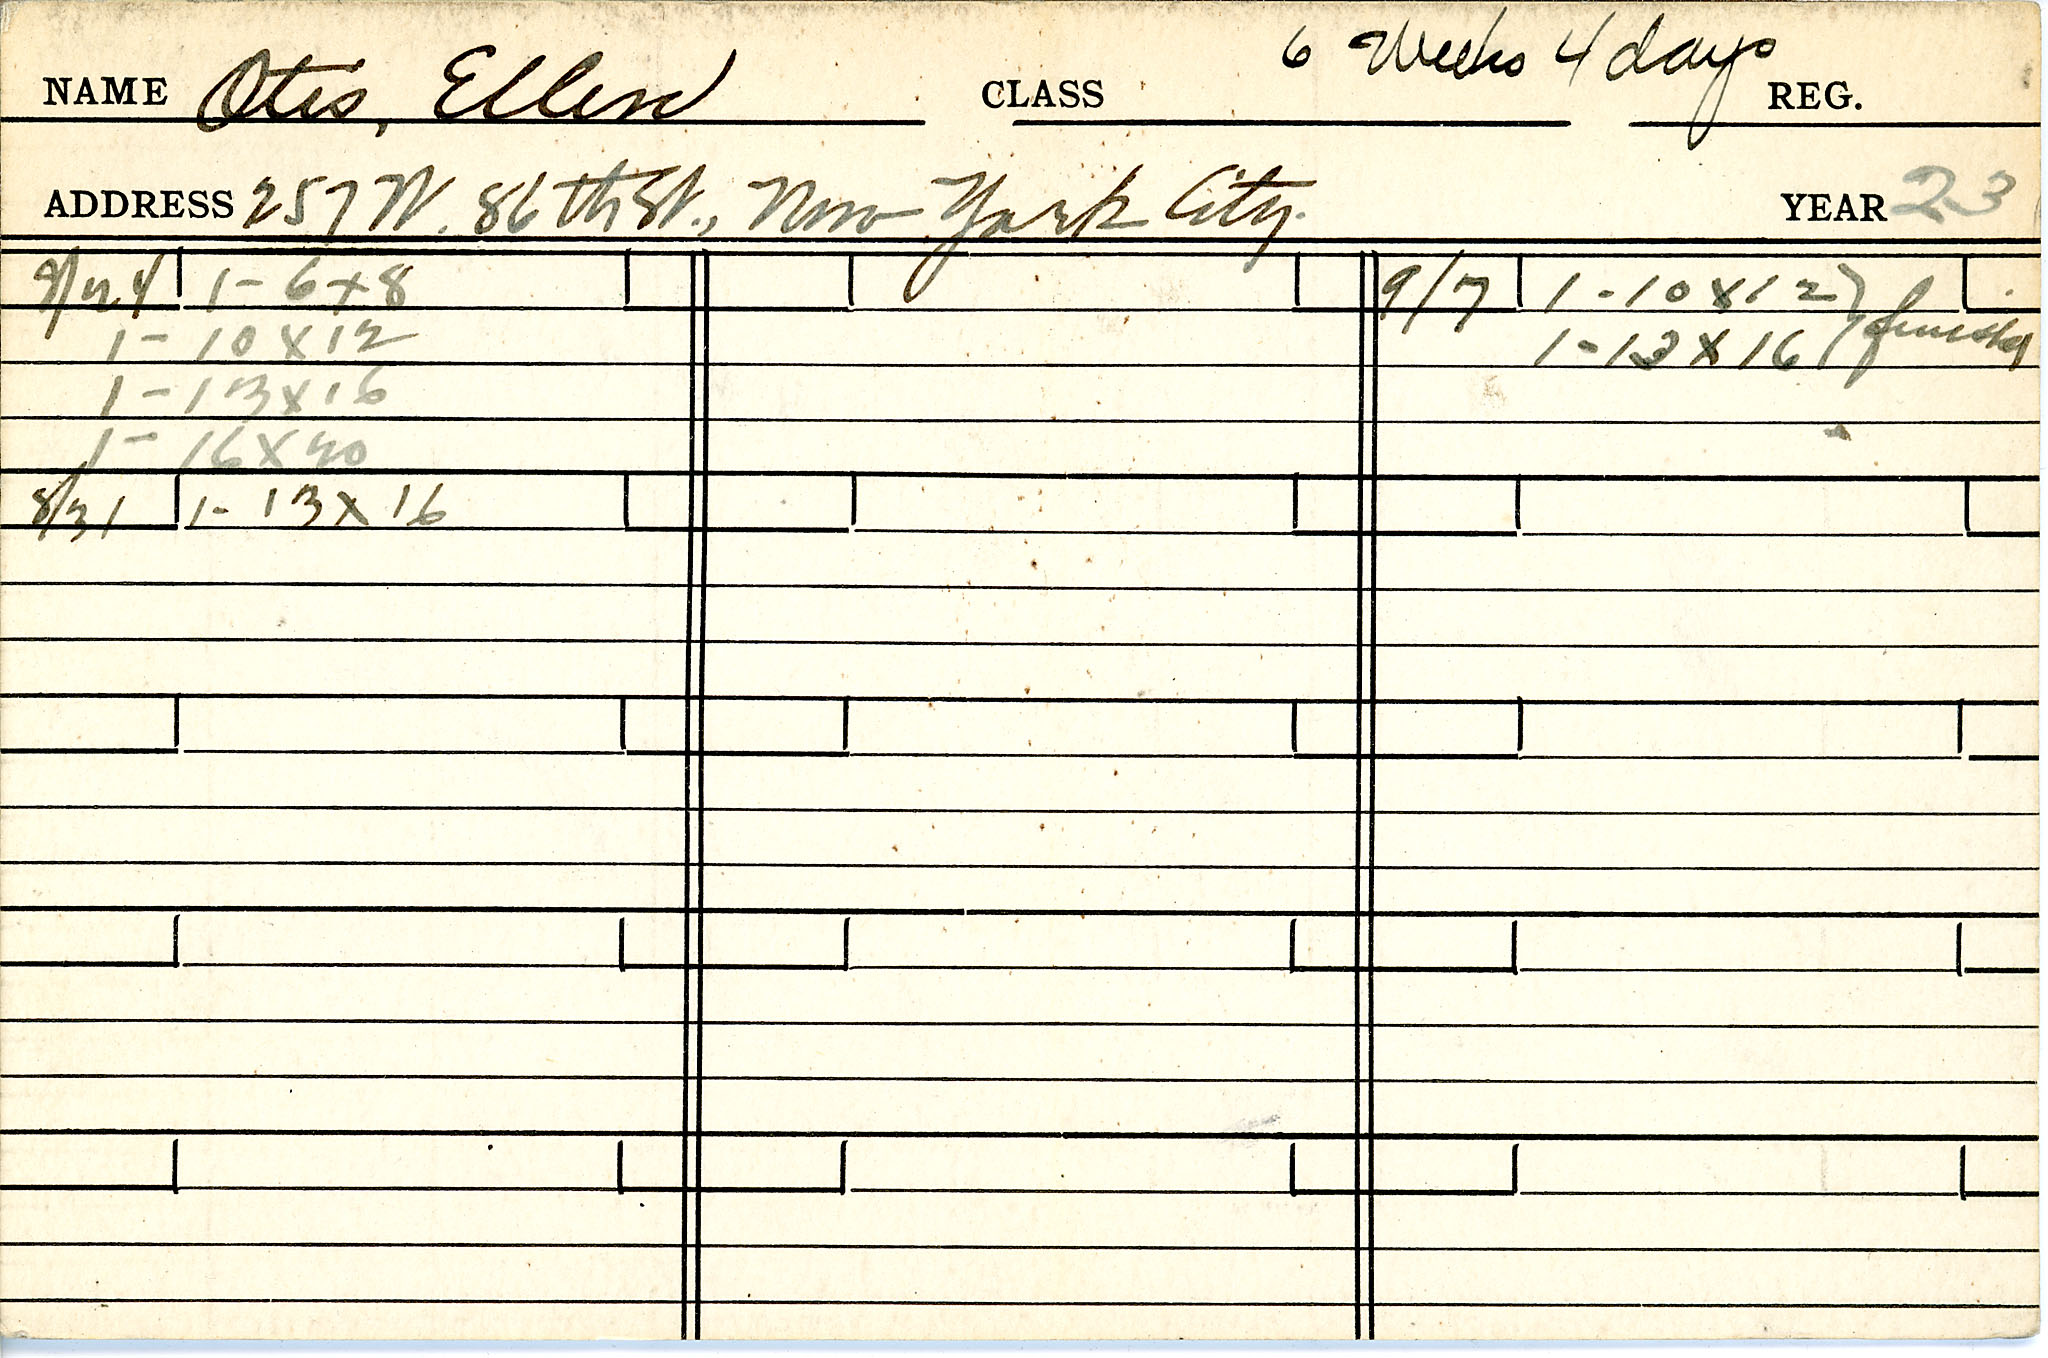 NAME Otis, Ellen CLASS 6 Weeks 4 days REG.
ADDRESS 257 W. 86th St., New York City. YEAR 23
8/24 1-6x8
1-10x12
1-13x16
1-16x20
8/31 1-13x16
9/7 1-10x12
1-13x16 } finished